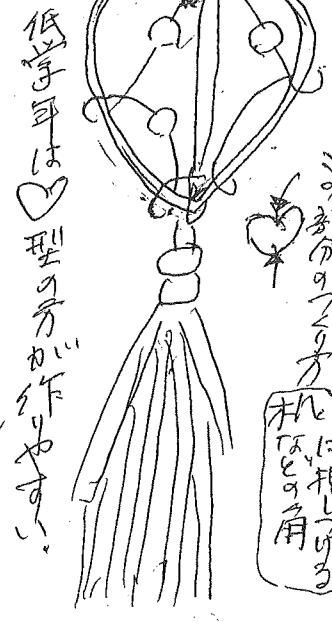 この部分のつくり方
机などの角
に押しつける
低学年は♡型の方が作りやすい。